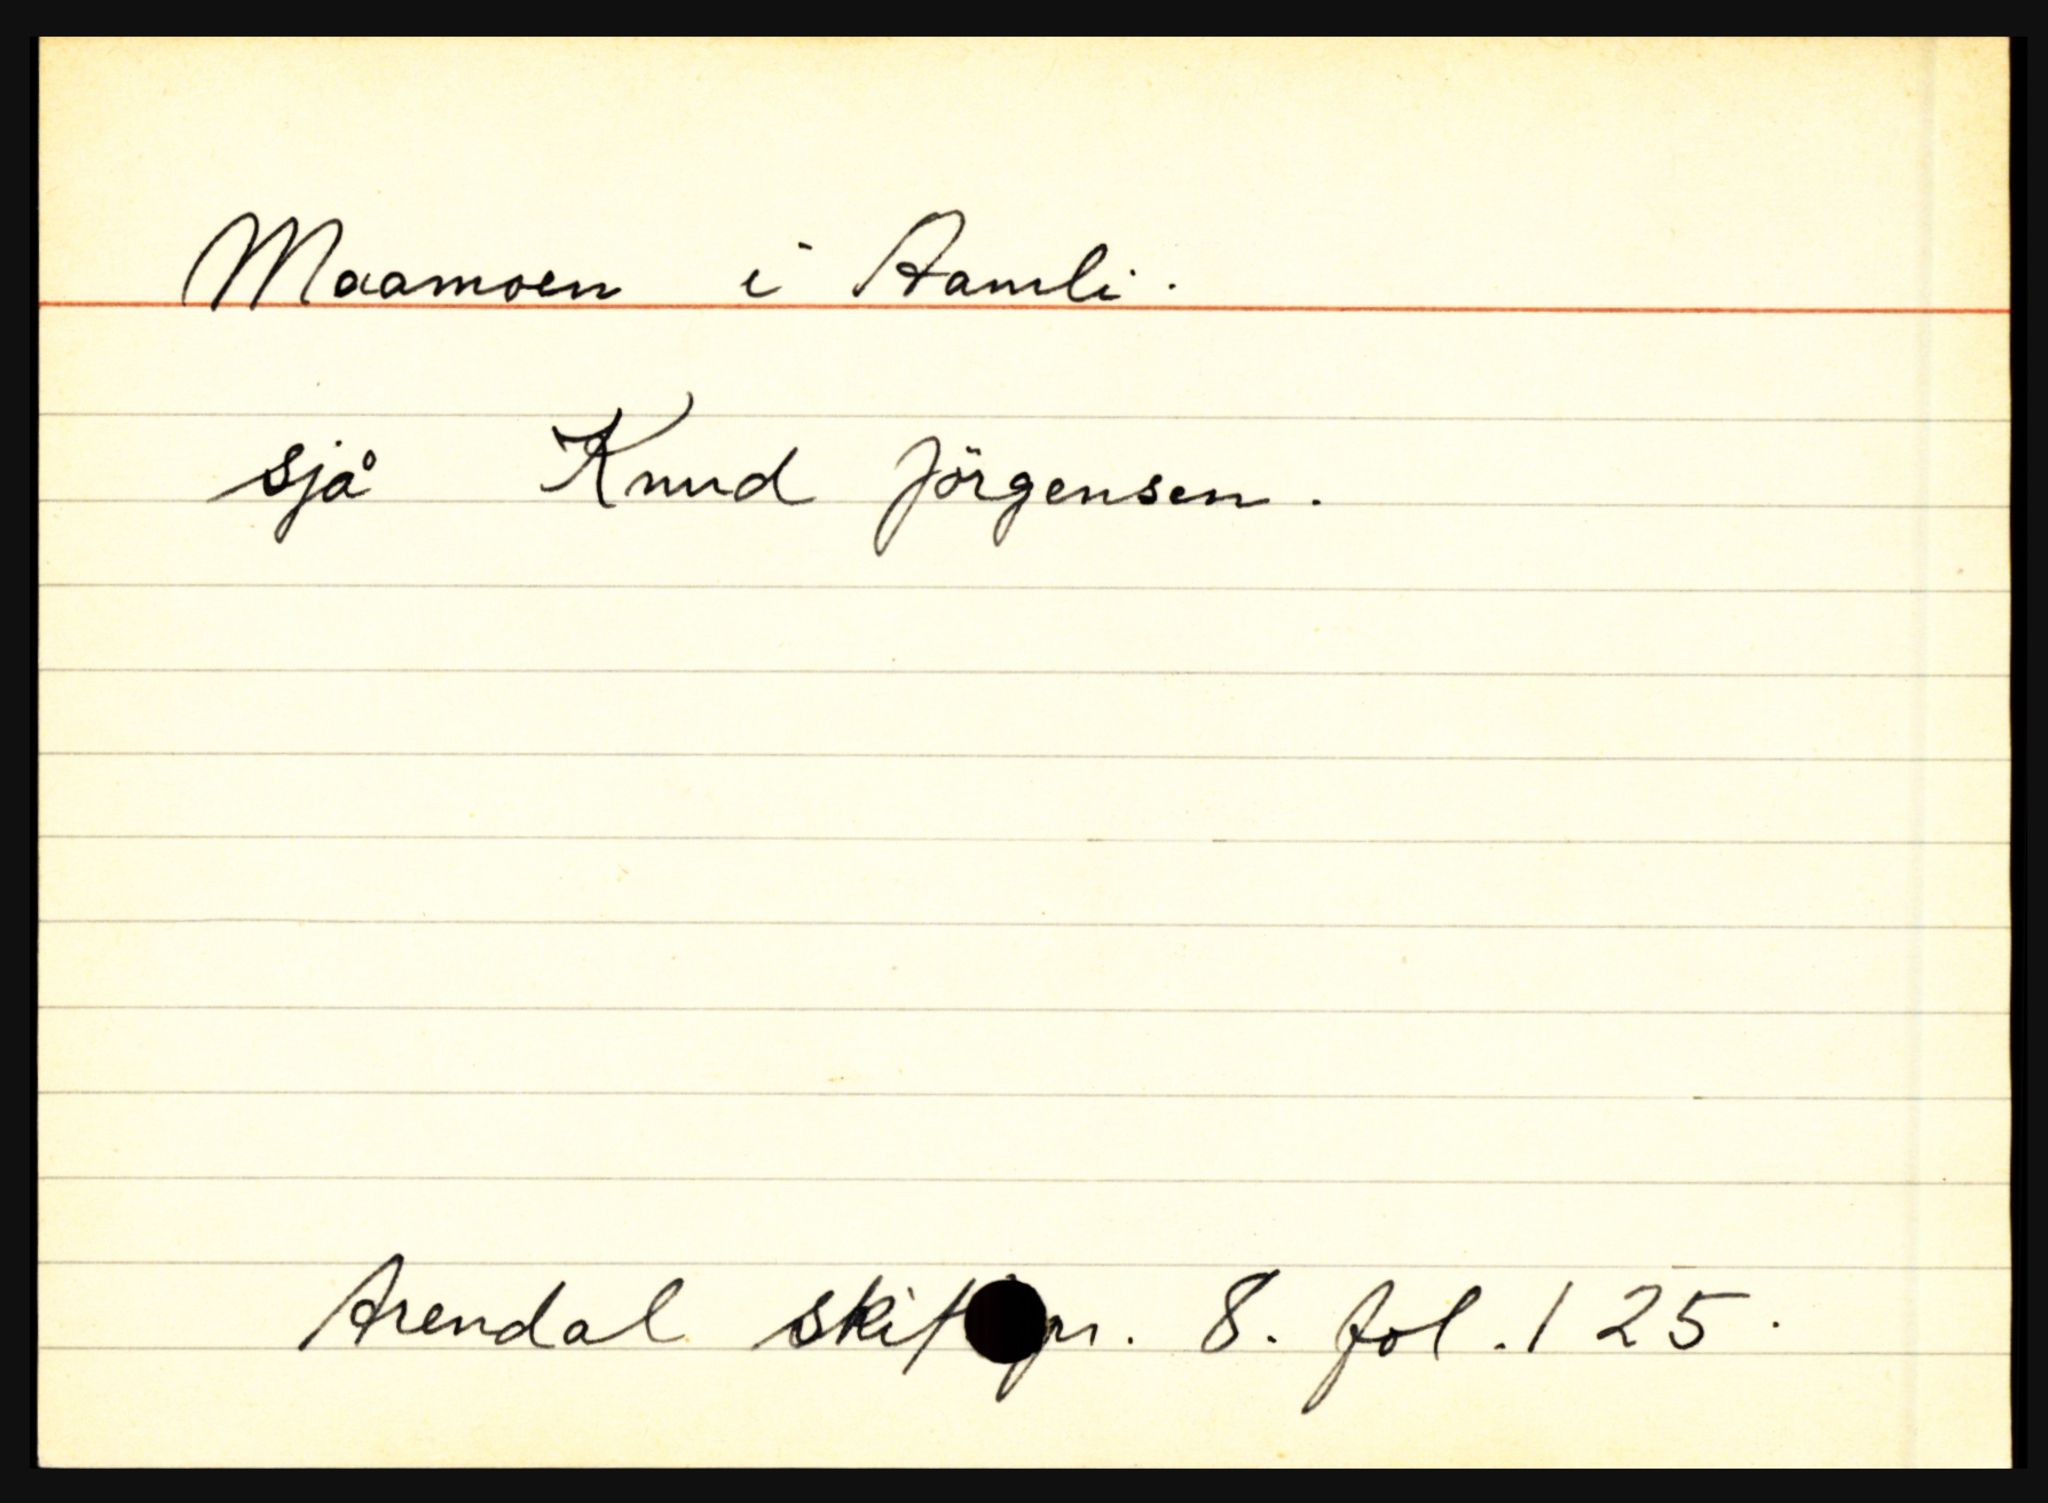 Maamoen i Aamli.
sjå Knud Jörgensen.
Arendal 8. fol. 125.